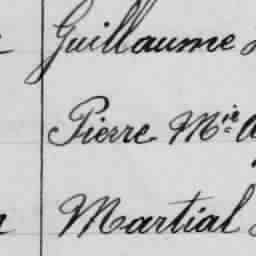 Guillaume
Pierre Mie
Martial